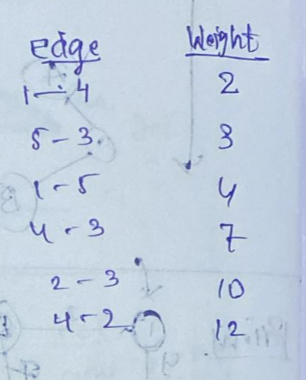 edge Weight
1-4 2
5-3 3
1-5 4
4-3 7
2-3 10
4-2 12